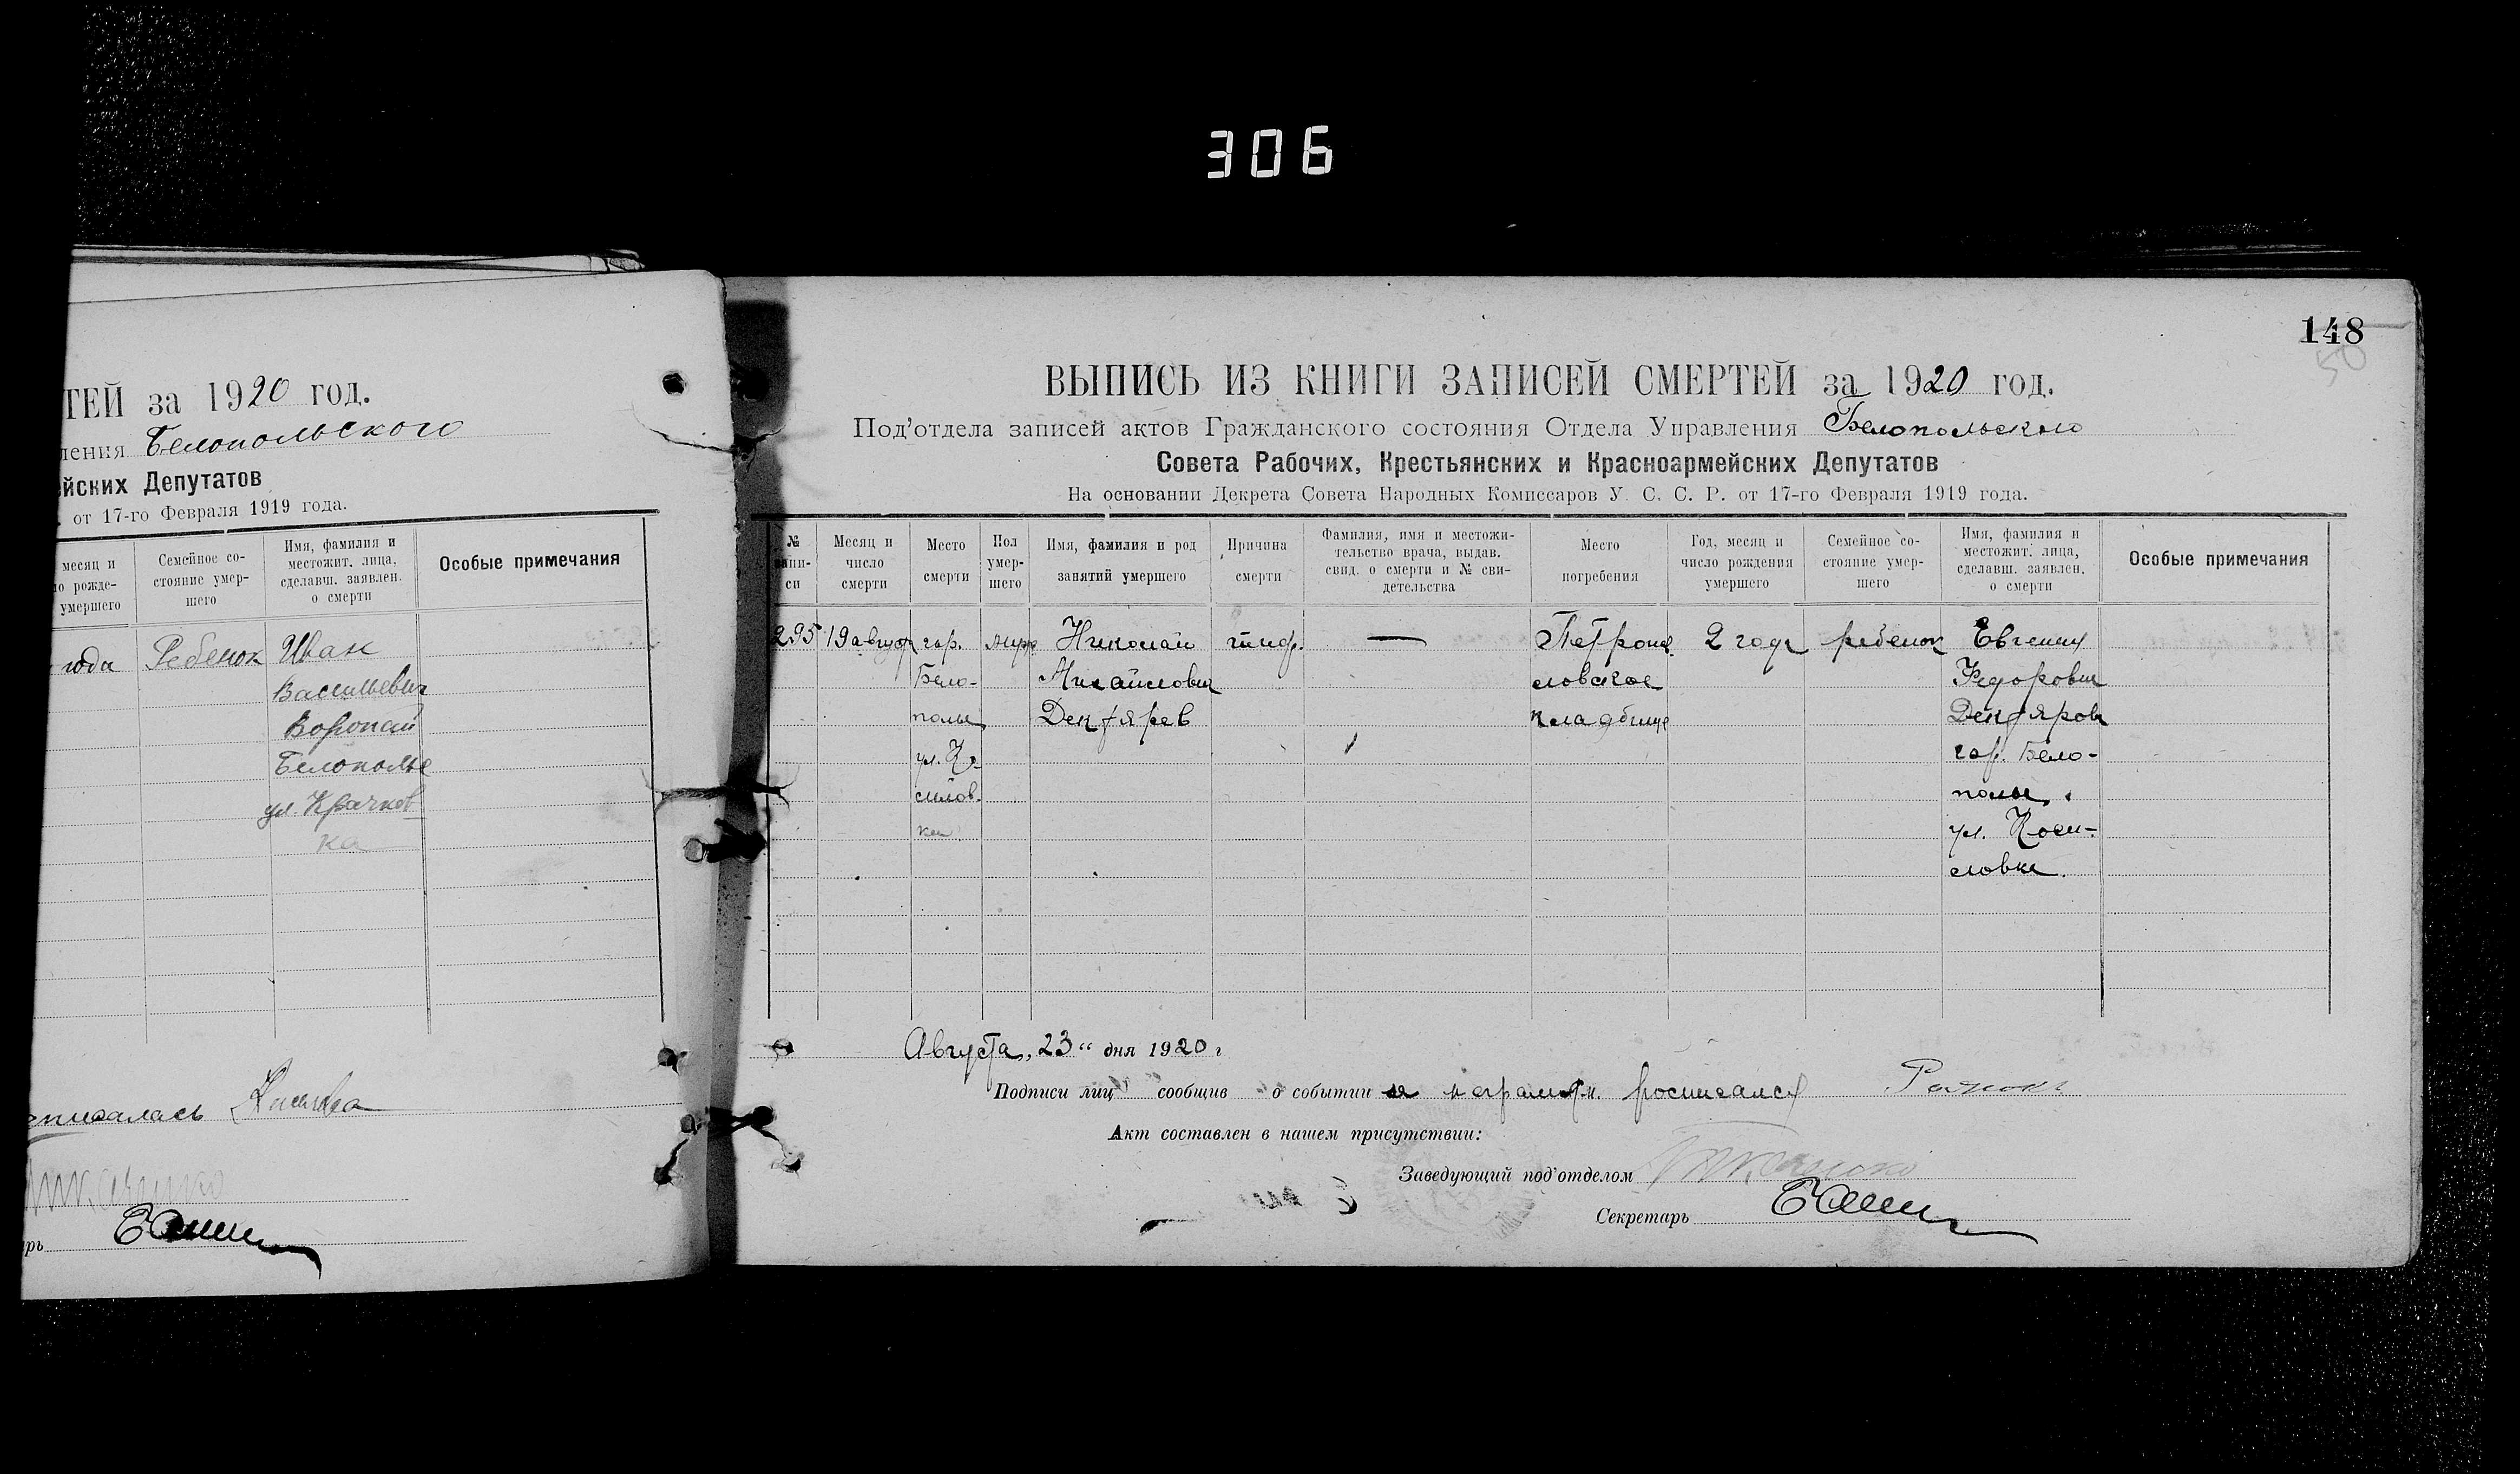 306
ТЕЙ за 1920 год.
ления Белопольского
ейских Депутатов
. от 17-го Февраля 1919 года.
месяц и
ло рожде-
умершего
Семейное со-
стояние умер-
шего
Имя, фамилия и
местожит. лица,
сделавш. заявлен.
о смерти
Особые примечания
года
Ребенок
Иван
Васильевич
Воропай
Белополье
ул. Крачков
ка
арь
148
50
ВЫПИСЬ ИЗ КНИГИ ЗАПИСЕЙ СМЕРТЕЙ за 1920 год.
Под'отдела записей актов Гражданского состояния Отдела Управления Белопольского
Совета Рабочих, Крестьянских и Красноармейских Депутатов
На основании Декрета Совета Народных Комиссаров У. С. С. Р. от 17-го Февраля 1919 года.
№
запи-
си
Месяц и
число
смерти
Место
смерти
Пол
умер-
шего
Имя, фамилия и род
занятий умершего
Причина
смерти
Фамилия, имя и местожи-
тельство врача, выдав.
свид. о смерти и № сви-
детельства
Место
погребения
Год, месяц и
число рождения
умершего
Семейное со-
стояние умер-
шего
Имя, фамилия и
местожит. лица,
сделавш. заявлен.
о смерти
Особые примечания
295
19 август
гор.
Бело-
полье
ул. Ко-
силов.
ка
Николай
Михайлович
Дектярев
тиф.
—
Петропав
ловское
кладбище
2 года
ребенок
Евгений
Федорович
Дектярев
гор. Бело-
полье,
ул. Коси-
ловка.
Августа, 23 " дня 1920 г
Подписи лиц сообщив о событии я неграмотн. росписался
Акт составлен в нашем присутствии:
Заведующий под'отделом
Секретарь